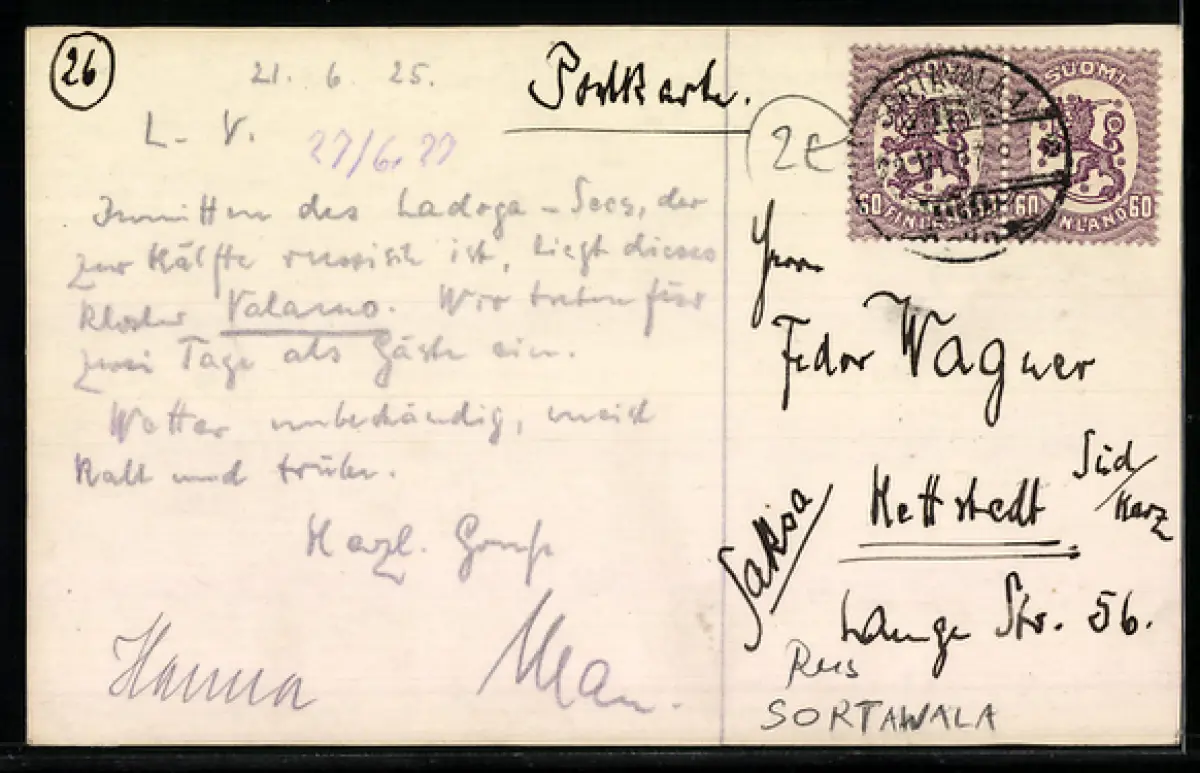 26
21. 6. 25.
L. V.
27/6.27
Inmitten des Ladoga-Sees, der
zur Hälfte russisch ist, liegt dieses
Kloster Valamo. Wir treten für
zwei Tage als Gäste ein.
Wetter unbeständig, meist
kalt und trübe.
Herzl. Gruß
Hanna
Max.
Postkarte.
SUOMI
SUOMI
SORTAVALA 1
60 FINLAND 60
FINLAND 60
Herrn
Fedor Wagner
Hettstedt
Süd/
Harz
Saksa
Lange Str. 56.
SORTAWALA